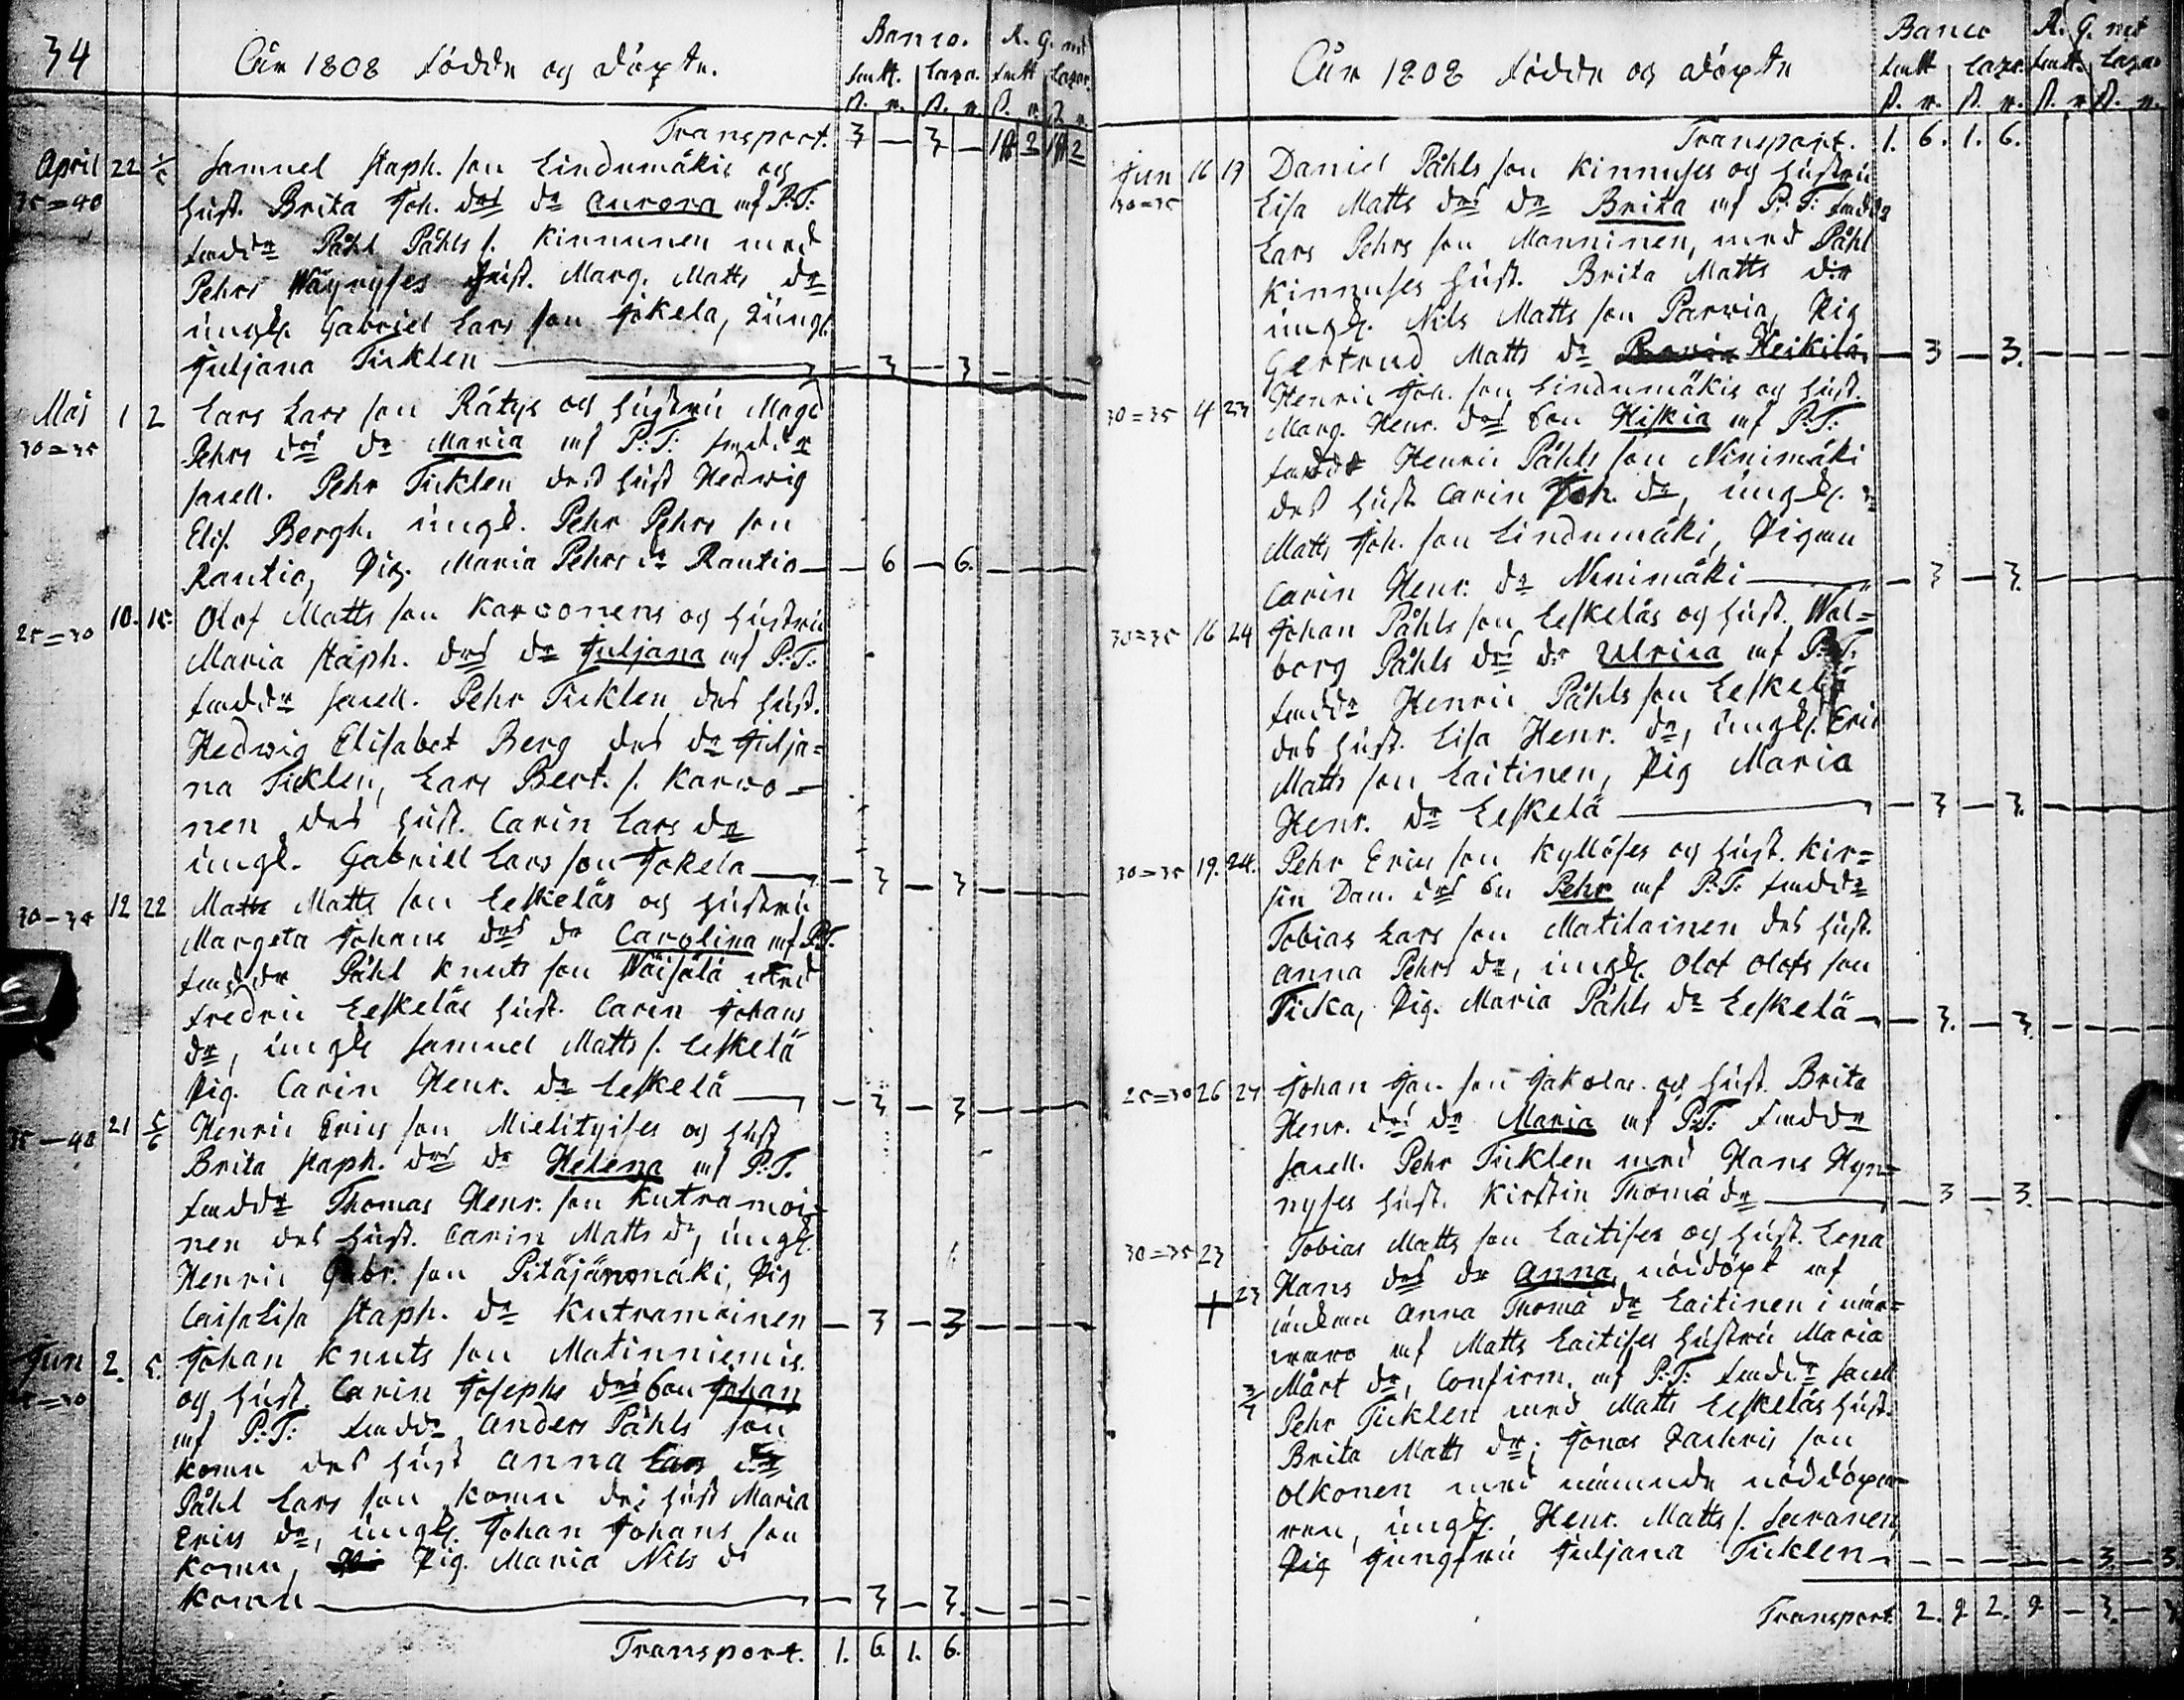 34
Åår 1808 födde og döpte.
Banco. R. G. med
fatt. Lazar. fatt Lazar.
Transport. 3 — 3 — 18 2 18 2
April 22 1/5 Samuel Staph. son Lindumäkis og
35=40 hust. Brita Joh. drs dr Aurora af P:T:
faddr Påhl Påhls s. Kinnunen med
Pehrs Wäyryses hust. Marg. Matts dr
ungk. Gabriel Lars son Jokela, Jungf.
Juljana Ticklen — 3 — 3 — —
Maj 1 2 Lars Lars son Rätys og hustru Magd
30=35 Pehrs drs dr Maria af P:T: faddr
sacell. Pehr Ticklen des hust Hedwig
Elis. Bergh, ungk. Pehr Pehrs son
Rautio, Pig. Maria Pehrs dr Rautio — 6 — 6. — —
25=30 10. 15 Olof Matts son Karvonens og hustru
Maria Staph. drs dr Juljana af P:T:
faddr sacell. Pehr Ticklen des hust.
Hedwig Elisabet Berg des dr Julja=
na Ticklen, Lars Bert. s. Karvo=
nen des hust. Carin Lars dr
ungk. Gabriell Lars son Jokela — 3 — 3 — —
30-35 12 22 Matts Matts son Leskeläs og hustru
Margeta Johans drs dr Carolina af P:T.
faddr Påhl Knuts son Wäisälä med
Fredric Leskeläs hust. Carin Johans
dr, ungk Samuel Matts s. Leskelä
Pig. Carin Henr. dr Leskelä — 3 — 3 — —
35-40 21 5/6 Henric Erics son Mielityises og hust
Brita Staph. drs dr Helena af P:T.
faddr Thomas Henr. son Kutramoi=
nen des hust. Carin Matts dr, ungk.
Henric Gabr. son Pitäjänmäki, Pig
CaisaLisa Staph. dr Kutramoinen — 3 — 3 — —
Jun 2. 5. Johan Knuts son Matinniemis
25=30 og hust. Carin Josephs drs son Johan
af P:T: faddr Anders Påhls son
Komu des hust Anna Lars dr
Påhl Lars son Komu des hust Maria
Erics dr, ungk. Johan Johans son
Komu, Pig. Maria Nils dr
Komu — 3 — 3. — —
Transport. 1. 6. 1. 6.
Åår 1808 födde og döpte
Banco R. G. med
fatt Lazar. fatt. Lazar
Transport. 1. 6. 1. 6.
Jun 16 19 Daniel Påhls son Kinnuses og hustru
30=35 Lisa Matts drs dr Brita af P:T: faddr
Lars Pehrs son Manninen, med Påhl
Kinnuses hust. Brita Matts dr
ungk. Nils Matts son Parvia, Pig
Gertrud Matts dr Heikilä — 3 — 3. — —
30=35 4 23 Henric Joh. son Lindumäkis og hust.
Marg. Henr. drs son Hiskia af P:T:
faddr Henric Påhls son Ninimäki
des hust. Carin Joh. dr, ungk.
Matts Joh. son Lindumäki, Pigan
Carin Henr. dr Ninimäki — 3 — 3. — —
30=35 16 24 Johan Påhls son Leskeläs og hust. Wal=
borg Påhls drs dr Ulrica af P:T:
faddr Henric Påhls son Leskelä
des hust. Lisa Henr. dr, ungk. Eric
Matts son Laitinen, Pig Maria
Henr. dr Leskelä — 3 — 3. — —
30=35 19. 24. Pehr Erics son Kyllöses og hust. Kir=
sin Dan. drs son Pehr af P:T: faddr
Tobias Lars son Matilainen des hust.
Anna Pehrs dr, ungk. Olof Olofs son
Ticka, Pig. Maria Påhls dr Leskelä — 3. — 3. — —
25=30 26 27 Johan Jac. son Jakolas og hust. Brita
Henr. drs dr Maria af P:T: faddr
sacell. Pehr Ticklen med Hans Hyn=
nyses hust. Kirstin Thoma dr — 3 — 3. — —
30=35 23 Tobias Matts son Laitises og hust. Lena
+ 23 Hans drs dr Anna nöddöpt af
änkan Anna Thoma dr Laitinen i när=
waro af Matts Laitises hustru Maria
3/7 Mårt dr, Confirm. af P:T: faddr sacell
Pehr Ticklen med Matts Leskeläs hust.
Brita Matts dr; Jonas Zachris son
Olkonen med nämnde nöddöpa=
ren, ungk. Henr. Matts s. Savanen,
Pig Jungfru Juljana Ticklen — — — — 3. — 3
Transport 2. 9 2. 9 — 3. — 3